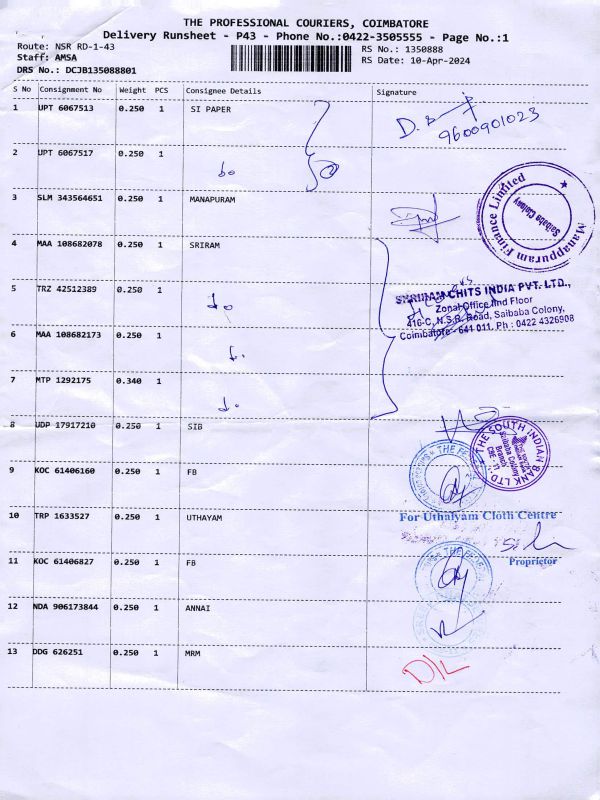 THE PROFESSIONAL COURIERS, COIMBATORE
Delivery Runsheet - P43 - Phone No.:0422-3505555 - Page No.:1
Route: NSR RD-1-43
RS No.: 1350888
Staff: AMSA
RS Date: 10-Apr-2024
DRS No.: DCJB135088801
S No Consignment No Weight PCS Consignee Details Signature
1 UPT 6067513 0.250 1 SI PAPER
D. B
9600901023
2 UPT 6067517 0.250 1
do
3 SLM 343564651 0.250 1 MANAPURAM
Manappuram Finance Limited
Saibaba Colony
4 MAA 108682078 0.250 1 SRIRAM
5 TRZ 42512389 0.250 1
do
SHRIRAM CHITS INDIA PVT. LTD.,
Zonal Office IInd Floor
416-C, N.S.R. Road, Saibaba Colony,
Coimbatore - 641 011. Ph : 0422 4326908
6 MAA 108682173 0.250 1
7 MTP 1292175 0.340 1
8 UDP 17917210 0.250 1 SIB
THE SOUTH INDIAN BANK LTD.
Saibaba Colony
Branch
CBE - 11
9 KOC 61406160 0.250 1 FB
THE FEDERAL
10 TRP 1633527 0.250 1 UTHAYAM
For Uthaiyam Cloth Centre
Proprietor
11 KOC 61406827 0.250 1 FB
THE FEDERAL
12 NDA 906173844 0.250 1 ANNAI
13 DDG 626251 0.250 1 MRM
D/L